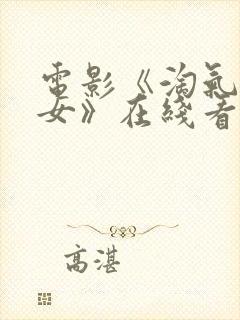 電影《淘氣
女》在綫看
高湛